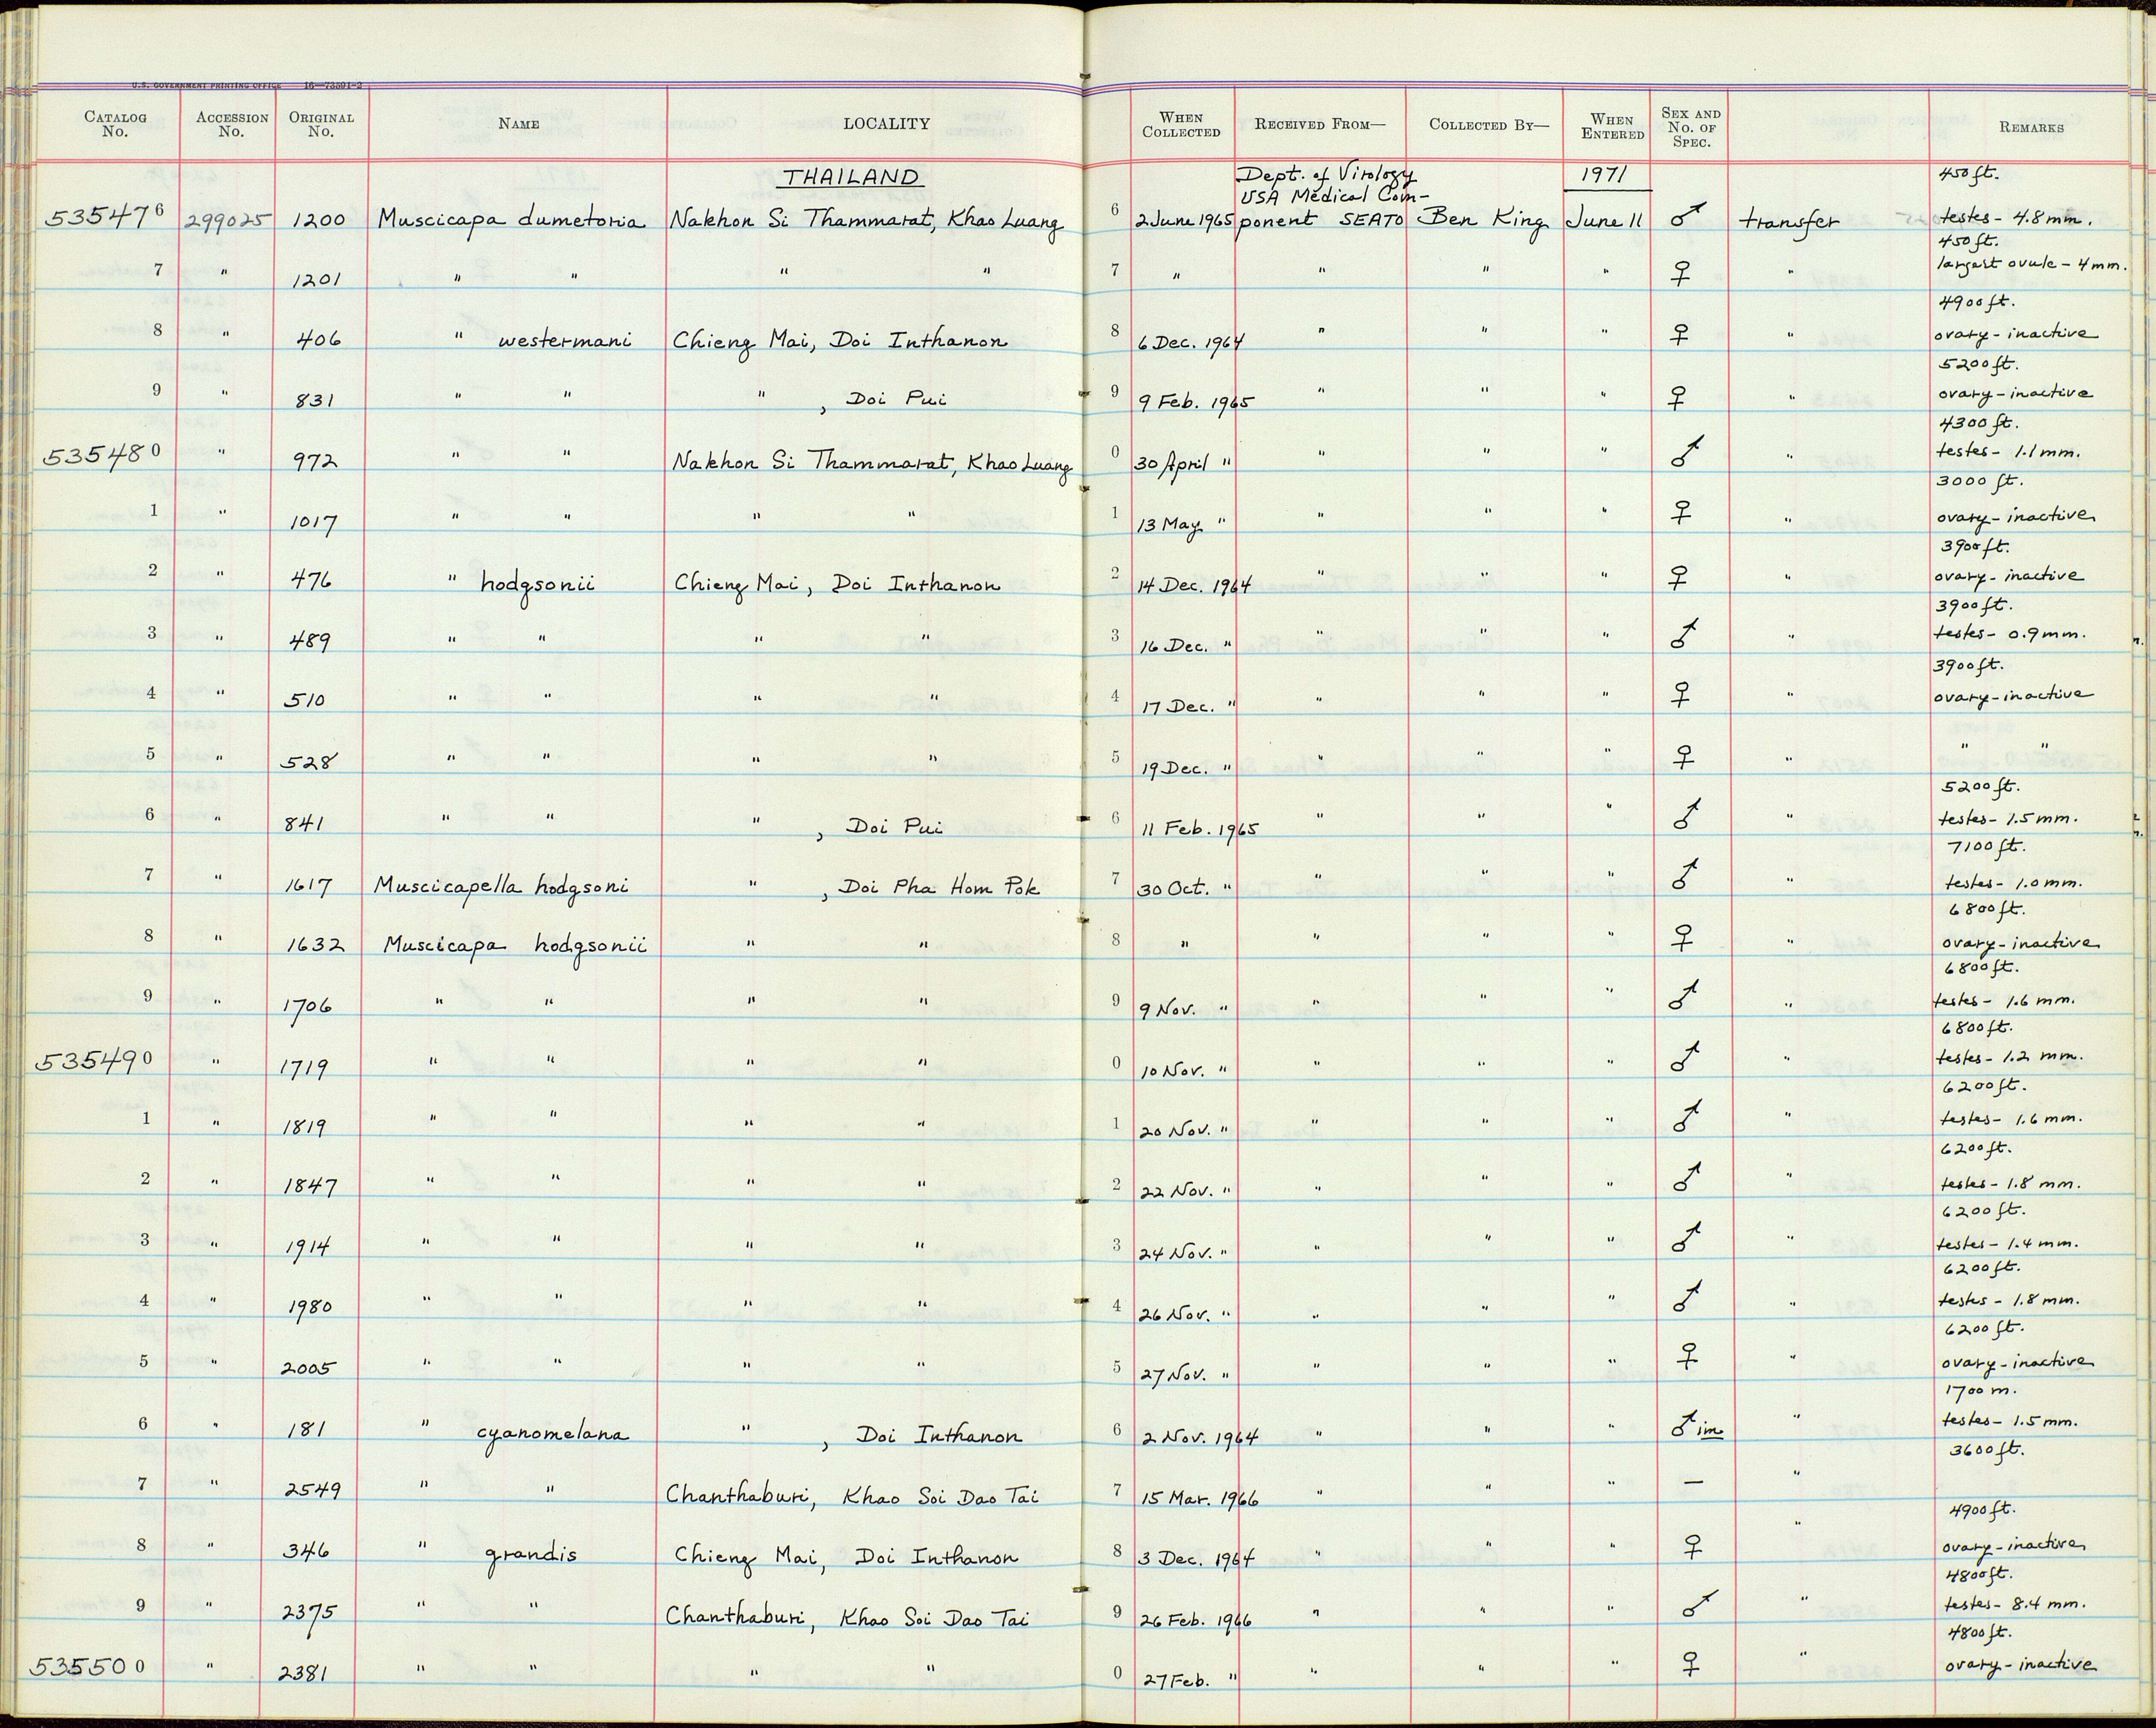 U.S. GOVERNMENT PRINTING OFFICE 16—73591-2
CATALOG No. ACCESSION No. ORIGINAL No. NAME LOCALITY WHEN COLLECTED RECEIVED FROM— COLLECTED BY— WHEN ENTERED SEX AND No. OF SPEC. REMARKS
THAILAND Dept. of Virology 1971 450 ft.
USA Medical Com-
535476 299025 1200 Muscicapa dumetoria Nakhon Si Thammarat, Khao Luang 6 2 June 1965 ponent SEATO Ben King June 11 ♂ transfer testes - 4.8 mm.
450 ft.
7 " 1201 " " " " 7 " " " " ♀ " largest ovule - 4 mm.
4900 ft.
8 " 406 " westermani Chieng Mai, Doi Inthanon 8 6 Dec. 1964 " " " ♀ " ovary - inactive
5200 ft.
9 " 831 " " " , Doi Pui 9 9 Feb. 1965 " " " ♀ " ovary - inactive
4300 ft.
535480 " 972 " " Nakhon Si Thammarat, Khao Luang 0 30 April " " " " ♂ " testes - 1.1 mm.
3000 ft.
1 " 1017 " " " " 1 13 May " " " " ♀ " ovary - inactive
3900 ft.
2 " 476 " hodgsonii Chieng Mai, Doi Inthanon 2 14 Dec. 1964 " " " ♀ " ovary - inactive
3900 ft.
3 " 489 " " " " 3 16 Dec. " " " " ♂ " testes - 0.9 mm.
3900 ft.
4 " 510 " " " " 4 17 Dec. " " " " ♀ " ovary - inactive
5 " 528 " " " " 5 19 Dec. " " " " ♀ " " "
5200 ft.
6 " 841 " " " , Doi Pui 6 11 Feb. 1965 " " " ♂ " testes - 1.5 mm.
7100 ft.
7 " 1617 Muscicapella hodgsoni " , Doi Pha Hom Pok 7 30 Oct. " " " " ♂ " testes - 1.0 mm.
6800 ft.
8 " 1632 Muscicapa hodgsonii " " 8 " " " " ♀ " ovary - inactive
6800 ft.
9 " 1706 " " " " 9 9 Nov. " " " " ♂ " testes - 1.6 mm.
6800 ft.
535490 " 1719 " " " " 0 10 Nov. " " " " ♂ " testes - 1.2 mm.
6200 ft.
1 " 1819 " " " " 1 20 Nov. " " " " ♂ " testes - 1.6 mm.
6200 ft.
2 " 1847 " " " " 2 22 Nov. " " " " ♂ " testes - 1.8 mm.
6200 ft.
3 " 1914 " " " " 3 24 Nov. " " " " ♂ " testes - 1.4 mm.
6200 ft.
4 " 1980 " " " " 4 26 Nov. " " " " ♂ " testes - 1.8 mm.
6200 ft.
5 " 2005 " " " " 5 27 Nov. " " " " ♀ " ovary - inactive
1700 m.
6 " 181 " cyanomelana " , Doi Inthanon 6 2 Nov. 1964 " " " ♂ im " testes - 1.5 mm.
3600 ft.
7 " 2549 " " Chanthaburi, Khao Soi Dao Tai 7 15 Mar. 1966 " " " — "
4900 ft.
8 " 346 " grandis Chieng Mai, Doi Inthanon 8 3 Dec. 1964 " " " ♀ " ovary - inactive
4800 ft.
9 " 2375 " " Chanthaburi, Khao Soi Dao Tai 9 26 Feb. 1966 " " " ♂ " testes - 8.4 mm.
4800 ft.
535500 " 2381 " " " " 0 27 Feb. " " " " ♀ " ovary - inactive